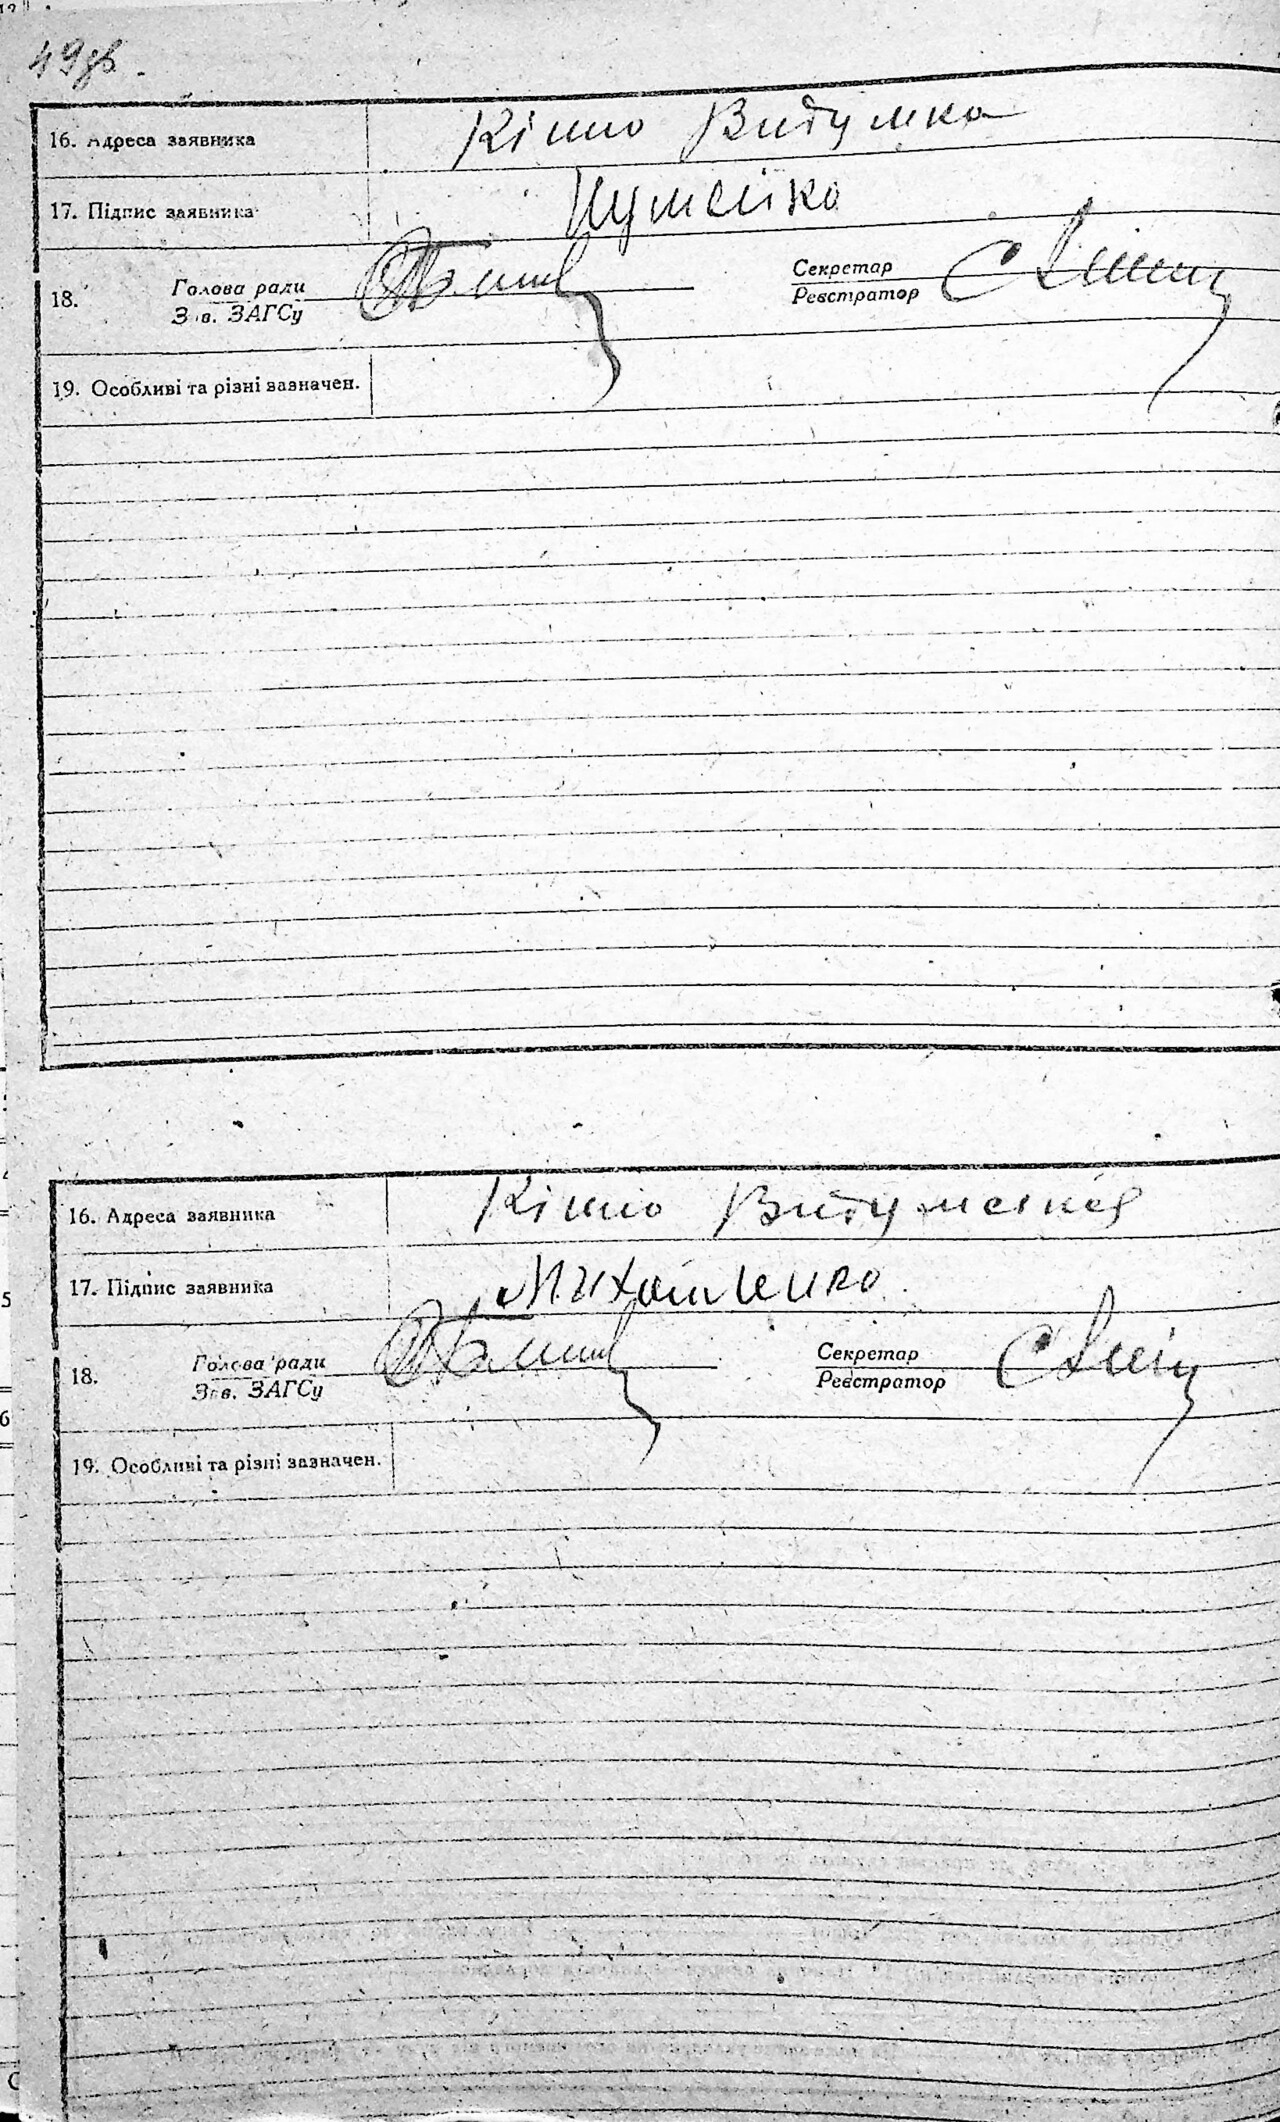 49 зв.
16. Адреса заявника Кішно Видумка
17. Підпис заявника
18. Голова ради Секретар
Зав. ЗАГСу Реєстратор
19. Особливі та різні зазначен.
16. Адреса заявника Кішно
17. Підпис заявника Михайленко
18. Голова ради Секретар
Зав. ЗАГСу Реєстратор
19. Особливі та різні зазначен.